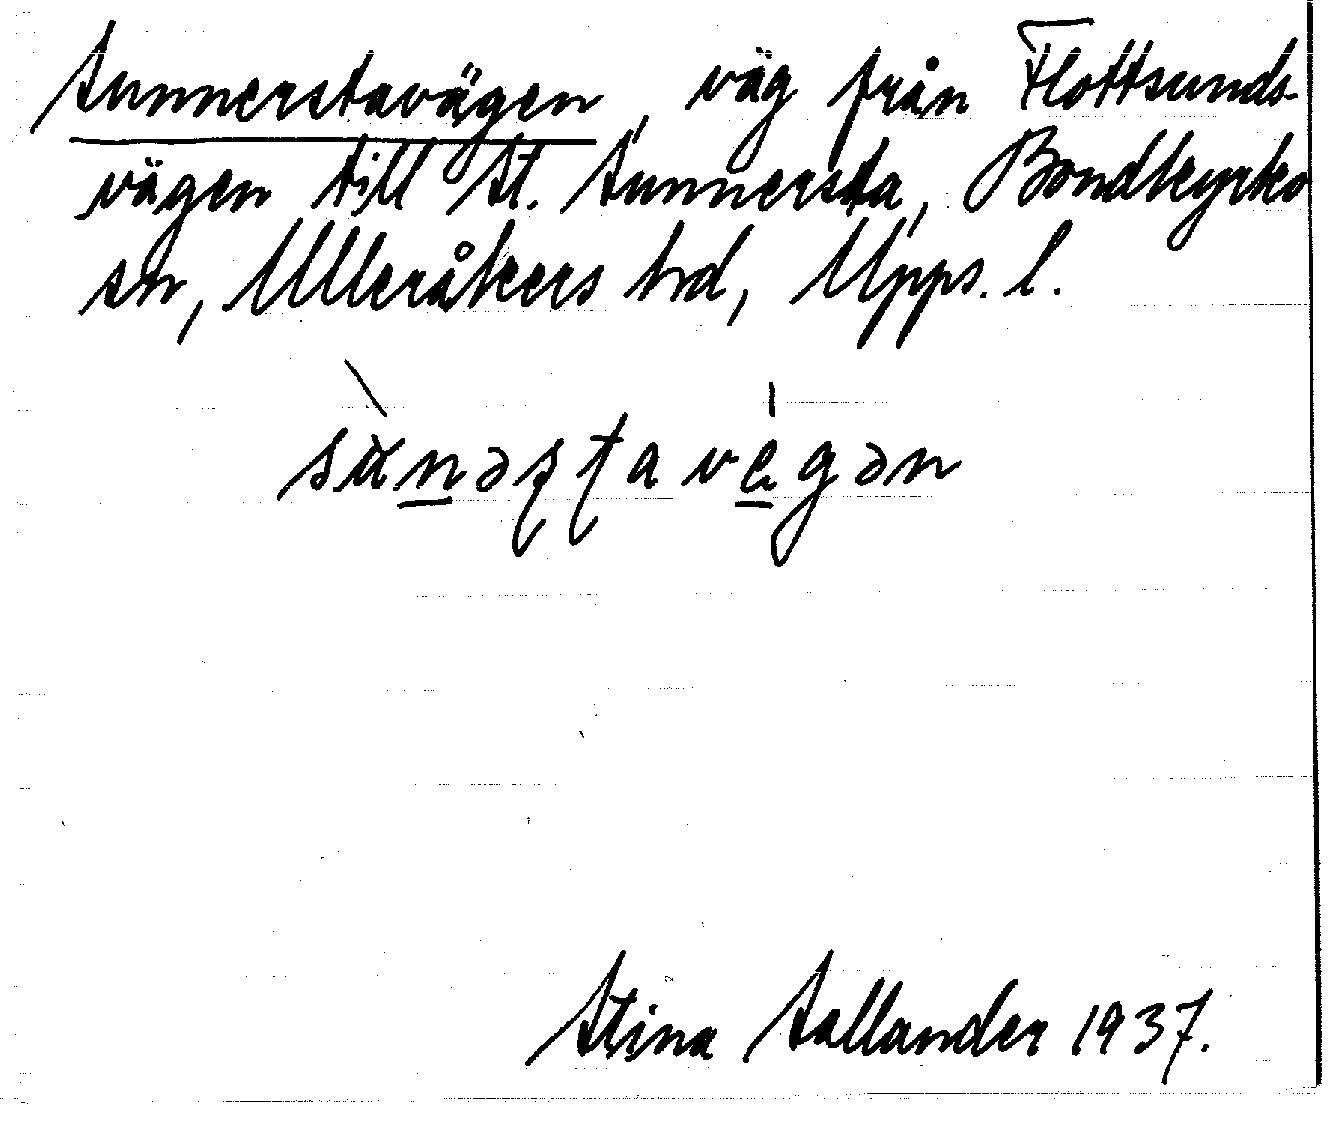 Sunnerstavägen, väg från Flottsunds-
vägen till St. Sunnersta, Bondkyrko
sn, Ulleråkers hd, Upps. l.
Stina Sallander 1937.